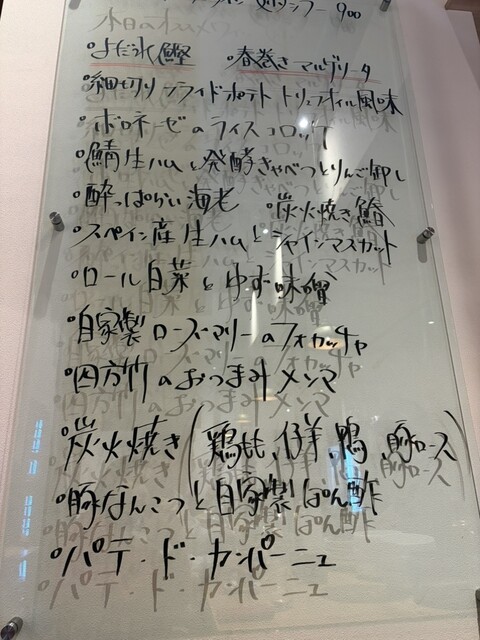 900
本日のオススメ
・よだれ鰹 ・春巻きマルゲリータ
・細切りフライドポテト トリュフオイル風味
・ボロネーゼのライスコロッケ
・鯖生ハムと発酵きゃべつとりんご卸し
・酔っぱらい海老 ・炭火焼き鰆
・スペイン産生ハムとシャインマスカット
・ロール白菜とゆず味噌
・自家製ローズマリーのフォカッチャ
・四方竹のおつまみメンマ
・炭火焼き(鶏もも、仔羊、鴨、豚ロース
・豚なんこつと自家製ぽん酢
・パテ・ド・カンパーニュ